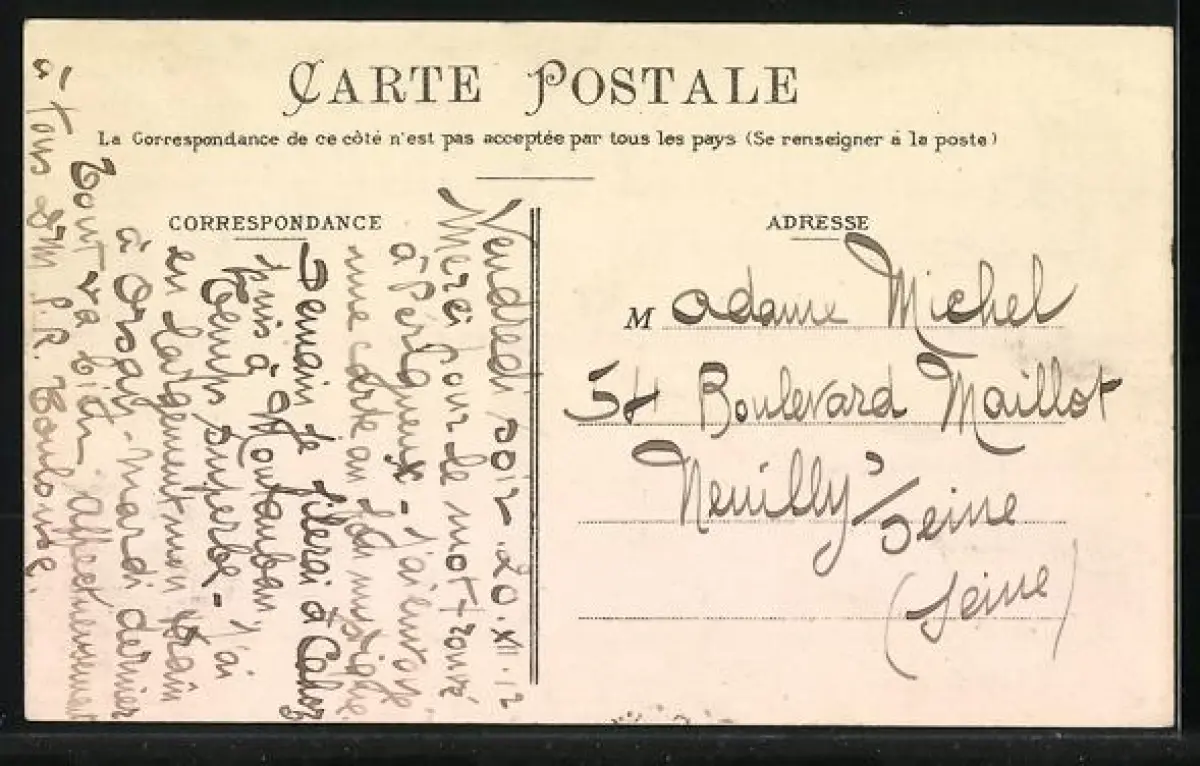 CARTE POSTALE
La Correspondance de ce côté n'est pas acceptée par tous les pays (Se renseigner à la poste)
CORRESPONDANCE
Vendredi soir. 20. XII. 12
Merci pour le mot trouvé
à Périgueux - J'ai envoyé
une carte au
Demain je filerai à Cahors
puis à Montauban,
Temps superbe - J'ai
eu largement mon train
à Orsay - mardi dernier
Tout va bien affectueusement
à Tous d'M P.R. Toulouse.
ADRESSE
Madame Michel
54 Boulevard Maillot
Neuilly s/Seine
(Seine)